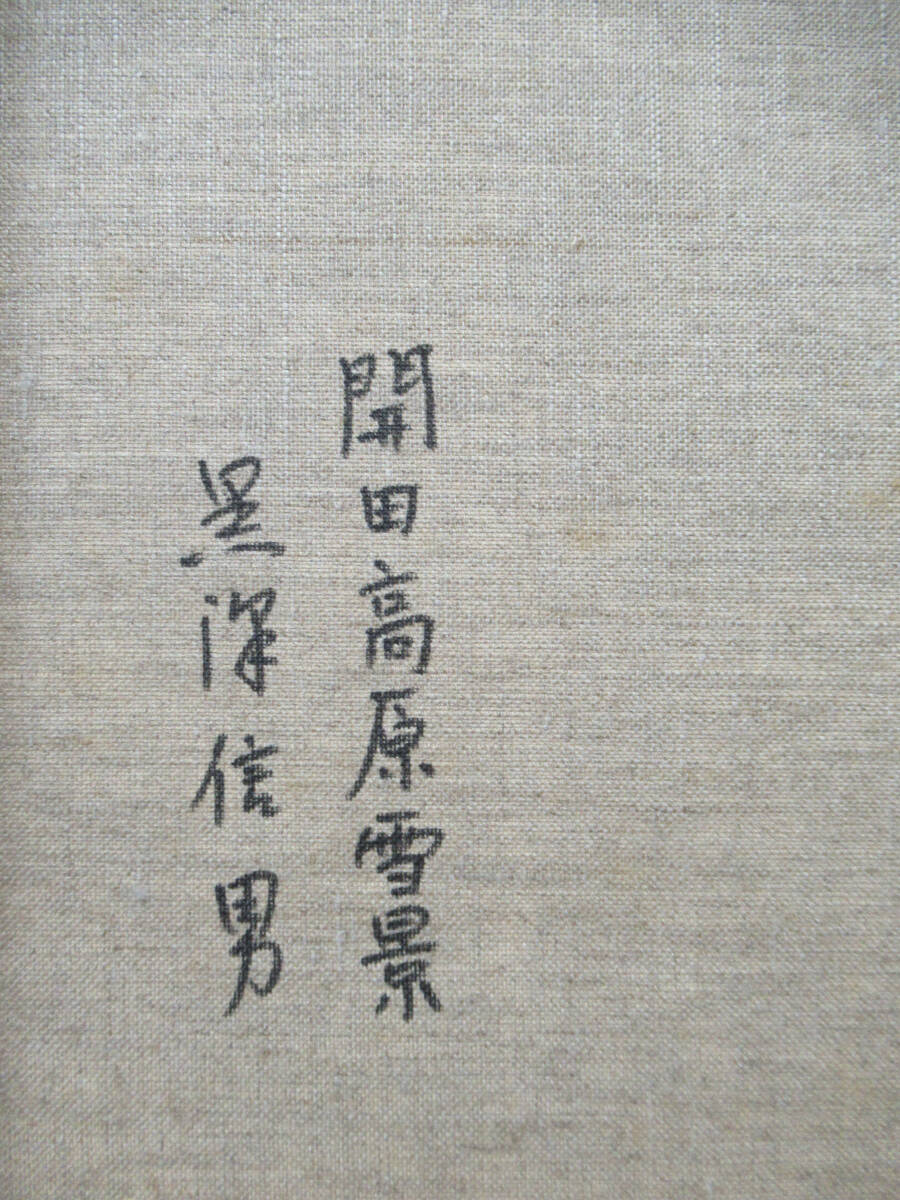 開田高原雪景
黒澤信男